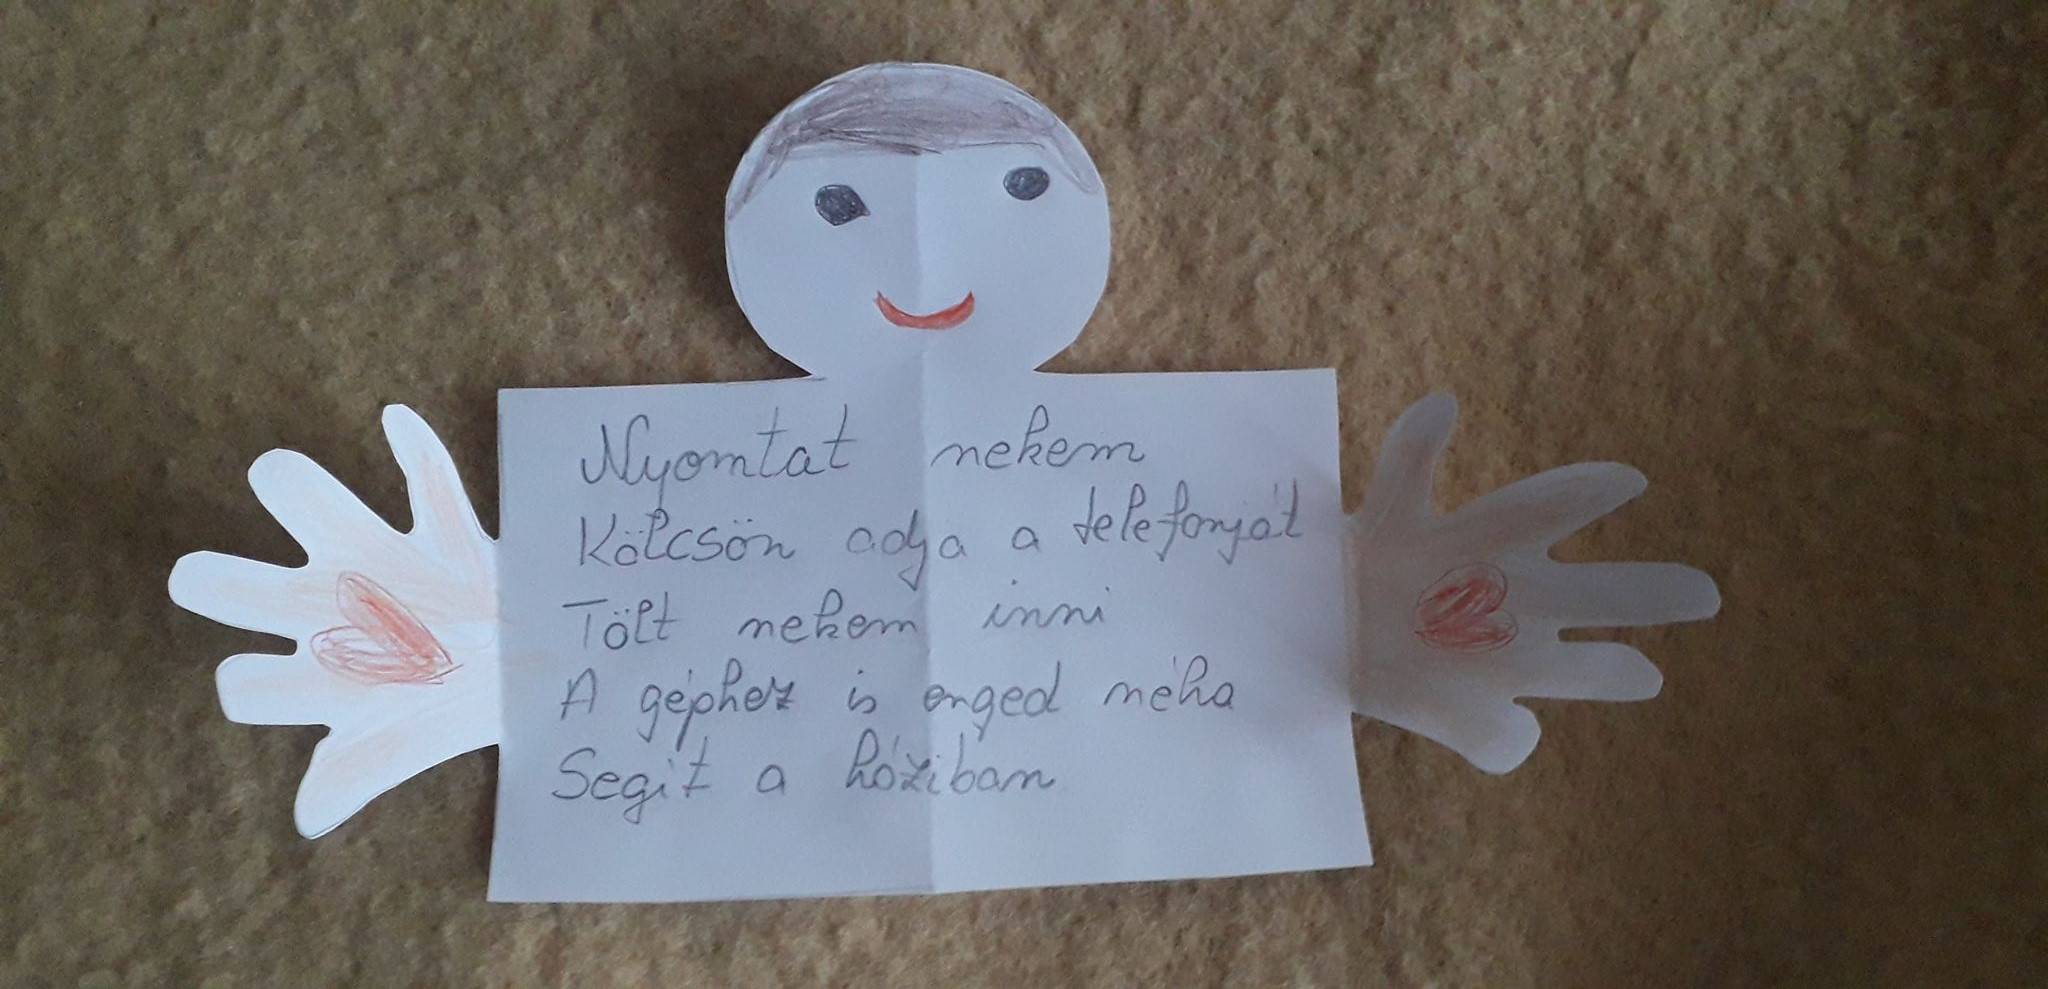 Nyomtat nekem
Kölcsön adja a telefonját
Tölt nekem inni
A géphez is enged néha
Segít a háziban